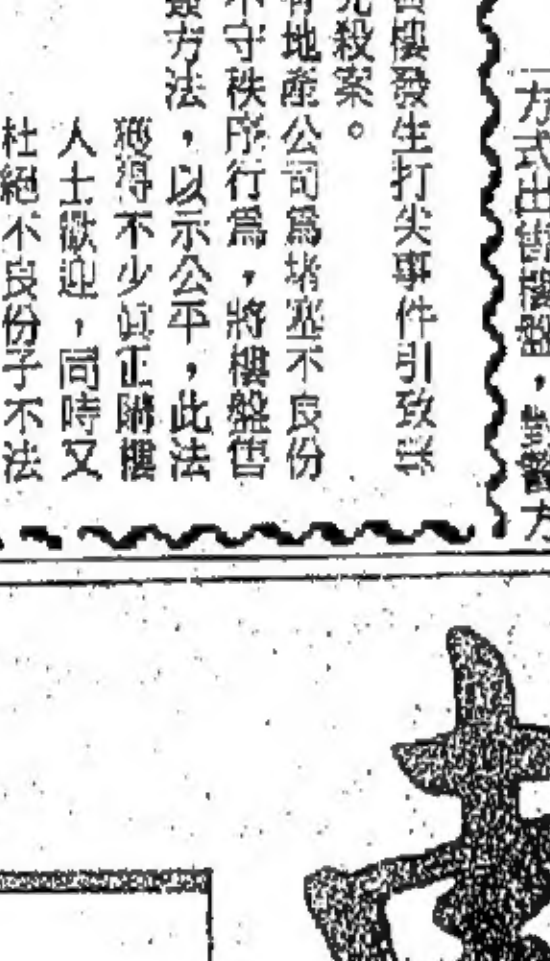 方式出售樓盤，對警方
樓發生打尖事件引致
殺案。
地產公司為堵塞不良份
不守秩序行為，將樓盤售
方法，以示公平，此法
獲得不少真正購樓
人士歡迎，同時又
杜絕不良份子不法